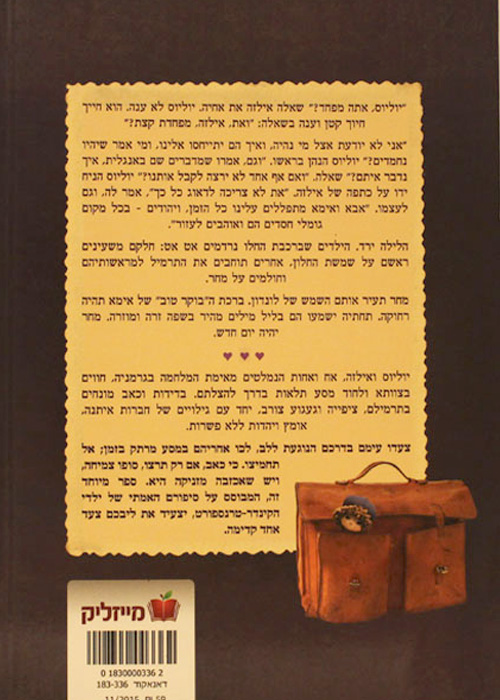 "יוליוס, אתה מפחד?" שאלה אילזה את אחיה. יוליוס לא ענה. הוא חייך
חיוך קטן וענה בשאלה: "ואת, אילזה, מפחדת קצת?"
"אני לא יודעת אצל מי נהיה, ואיך הם יתייחסו אלינו, ומי אמר שיהיו
נחמדים?" יוליוס הנהן בראשו. "וגם, אמרו שמדברים שם באנגלית, איך
נדבר איתם?" שאלה. "ואם אף אחד לא ירצה לקבל אותנו?" יוליוס הניח
ידו על כתפה של אילזה. "את לא צריכה לדאוג כל כך", אמר לה, וגם
לעצמו. "אבא ואימא מתפללים עלינו כל הזמן, ויהודים - בכל מקום
גומלי חסדים הם ואוהבים לעזור".
הלילה ירד. הילדים שברכבת החלו נרדמים אט אט: חלקם משעינים
ראשם על שמשת החלון, אחרים תוחבים את התרמיל למראשותיהם
וחולמים על מחר.
מחר תעיר אותם השמש של לונדון. ברכת ה"בוקר טוב" של אימא תהיה
רחוקה. תחתיה ישמעו הם בליל מילים מהיר בשפה זרה ומוזרה. מחר
יהיה יום חדש.
♥ ♥ ♥
יוליוס ואילזה, אח ואחות הנמלטים מאימת המלחמה בגרמניה, חווים
בצוותא ולחוד מסע תלאות בדרך להצלתם. בדידות וכאב מונחים
בתרמילם, ציפייה וגעגוע צורב, יחד עם גילויים של חברות איתנה,
אומץ ויהדות ללא פשרות.
צעדו עימם בדרכם הנוגעת ללב, לכו אחריהם במסע מרתק בזמן; אל
תחמיצו. כי כאב, אם רק תרצו, סופו צמיחה,
ויש שאכזבה מזניקה היא. ספר מיוחד
זה, המבוסס על סיפורם האמתי של ילדי
הקינדר-טרנספורט, יצעיד את ליבכם צעד
אחד קדימה.
מייזליק
0 1830000336 2
דאנאקוד 183-336
11/2015